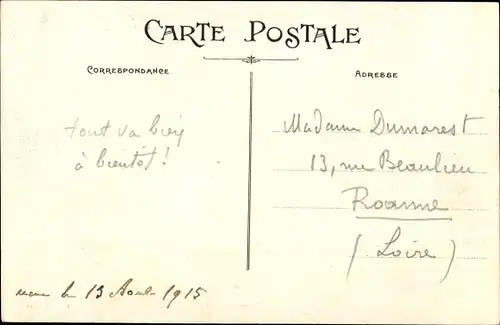 CARTE POSTALE
CORRESPONDANCE
ADRESSE
tout va bien
à bientôt !
Madame Dumarest
13, rue Beaulieu
Roanne
(Loire)
le 13 Août 1915